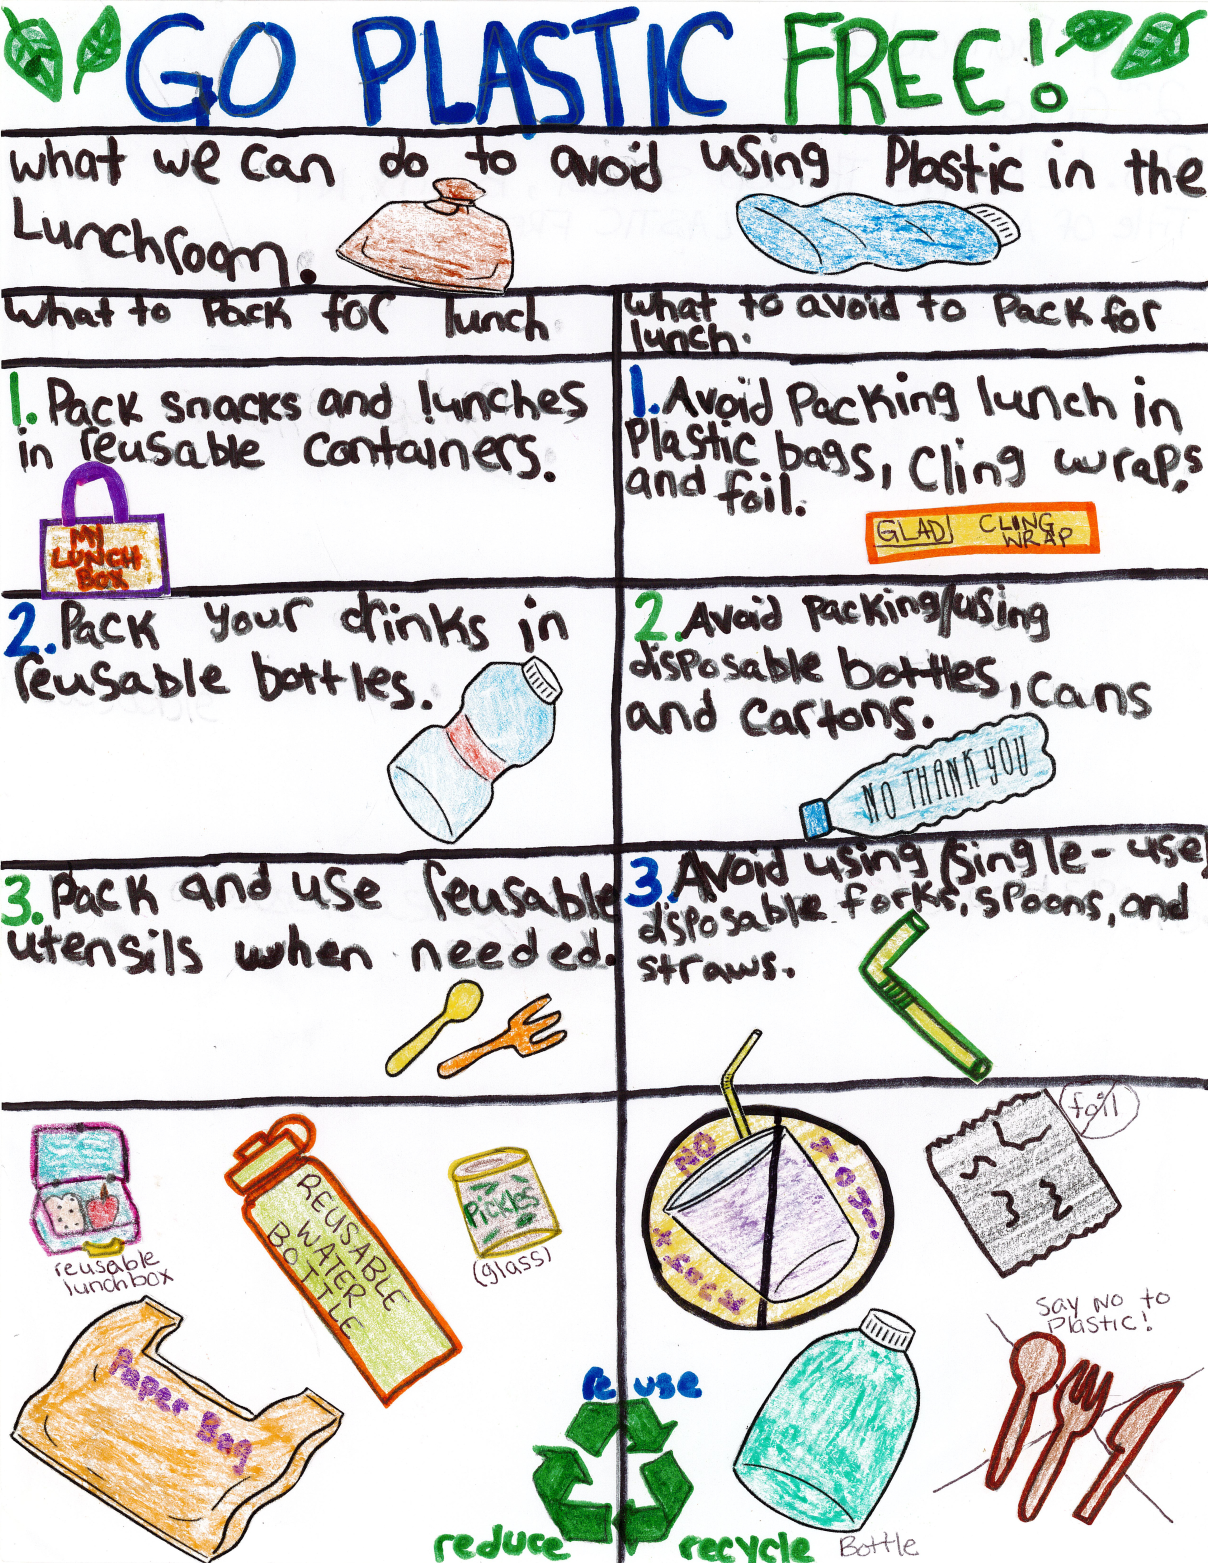 GO PLASTIC FREE!
what we can do to avoid using Plastic in the
Lunchroom.
What to Pack for lunch
1. Pack snacks and lunches
in reusable containers.
MY
LUNCH
BOX
2. Pack your drinks in
reusable bottles.
3. Pack and use reusable
utensils when needed.
reusable
lunchbox
REUSABLE
WATER
BOTTLE
Pickles
(glass)
Paper Bag
what to avoid to Pack for
lunch.
1. Avoid Packing lunch in
Plastic bags, Cling wraps,
and foil.
GLAD CLING
WRAP
2. Avoid packing/using
disposable bottles, cans
and cartons.
NO THANK YOU
3. Avoid using (single-use)
disposable forks, spoons, and
straws.
NO
foil
Say No to
Plastic!
Bottle
reuse
reduce recycle